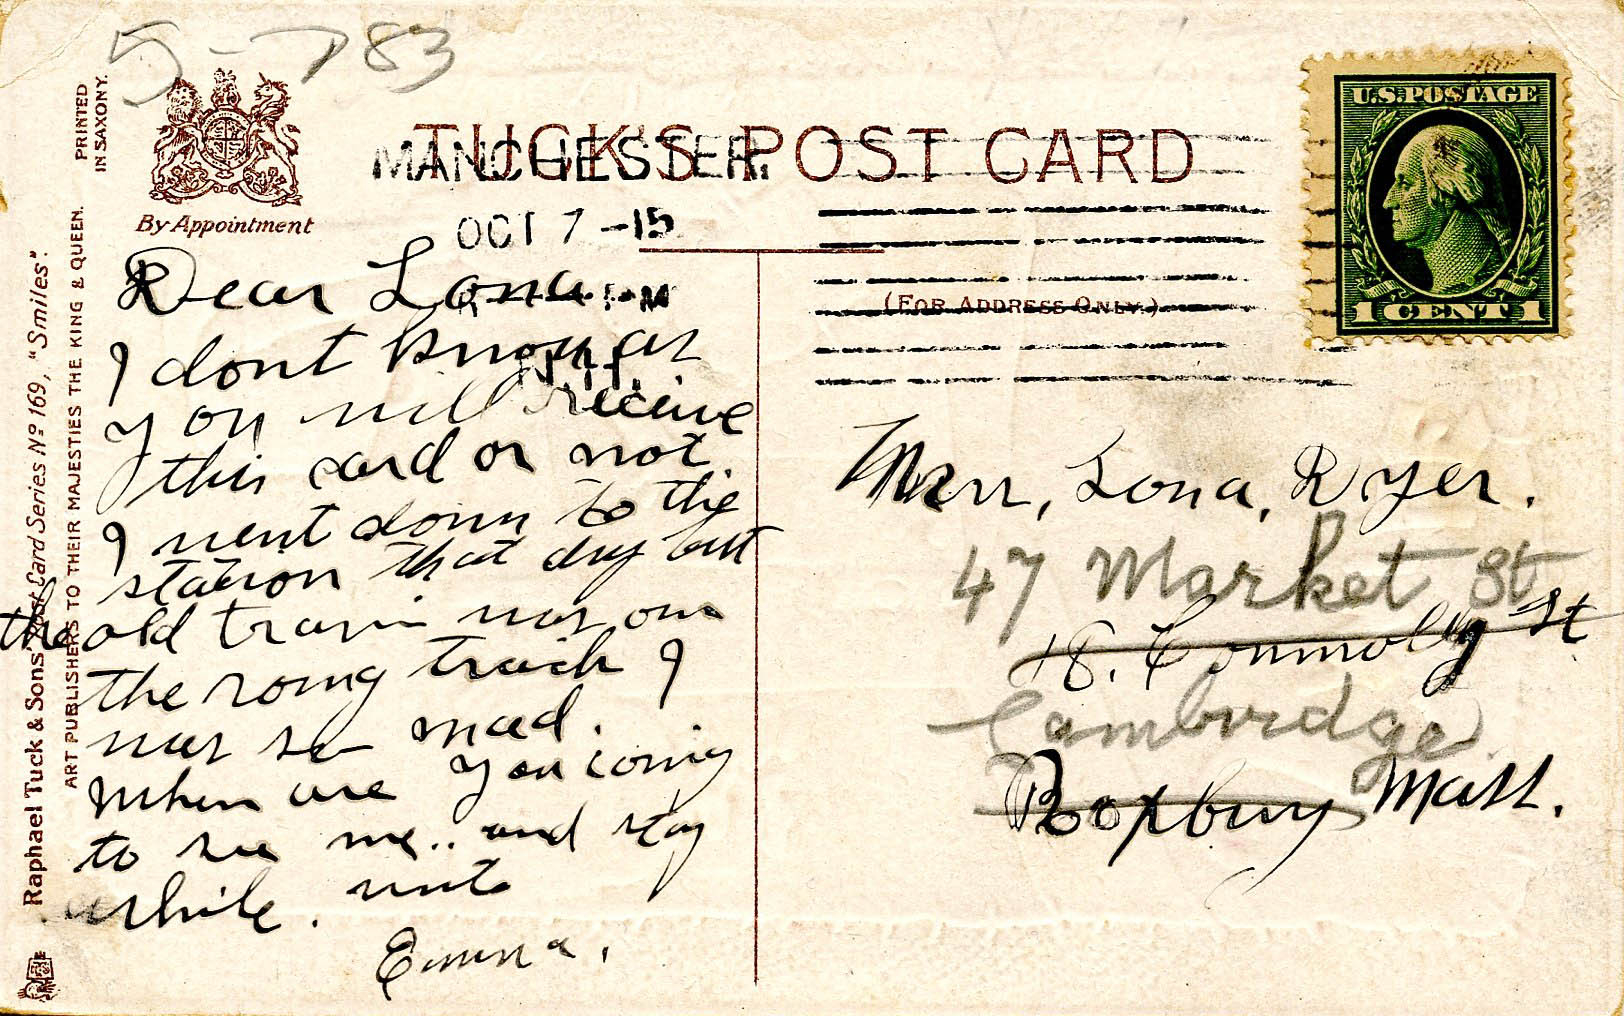 5-783
PRINTED
IN SAXONY.
By Appointment
TUCK'S POST CARD
MANCHESTER.
OCT 7 -15
N.H.
(FOR ADDRESS ONLY.)
U.S. POSTAGE
1 CENT 1
Raphael Tuck & Sons' Post Card Series Nº 169, "Smiles".
ART PUBLISHERS TO THEIR MAJESTIES THE KING & QUEEN.
Dear Lona
I dont know as
you will receive
this card or not.
I went down to the
station that day but
the old train was on
the rong track I
was so mad.
When are you coming
to see me.. and stay
awhile. write
Emma.
Mrs, Lona, Ryer.
47 Market St
18. Connolly St
Cambridge
Roxbury Mass.